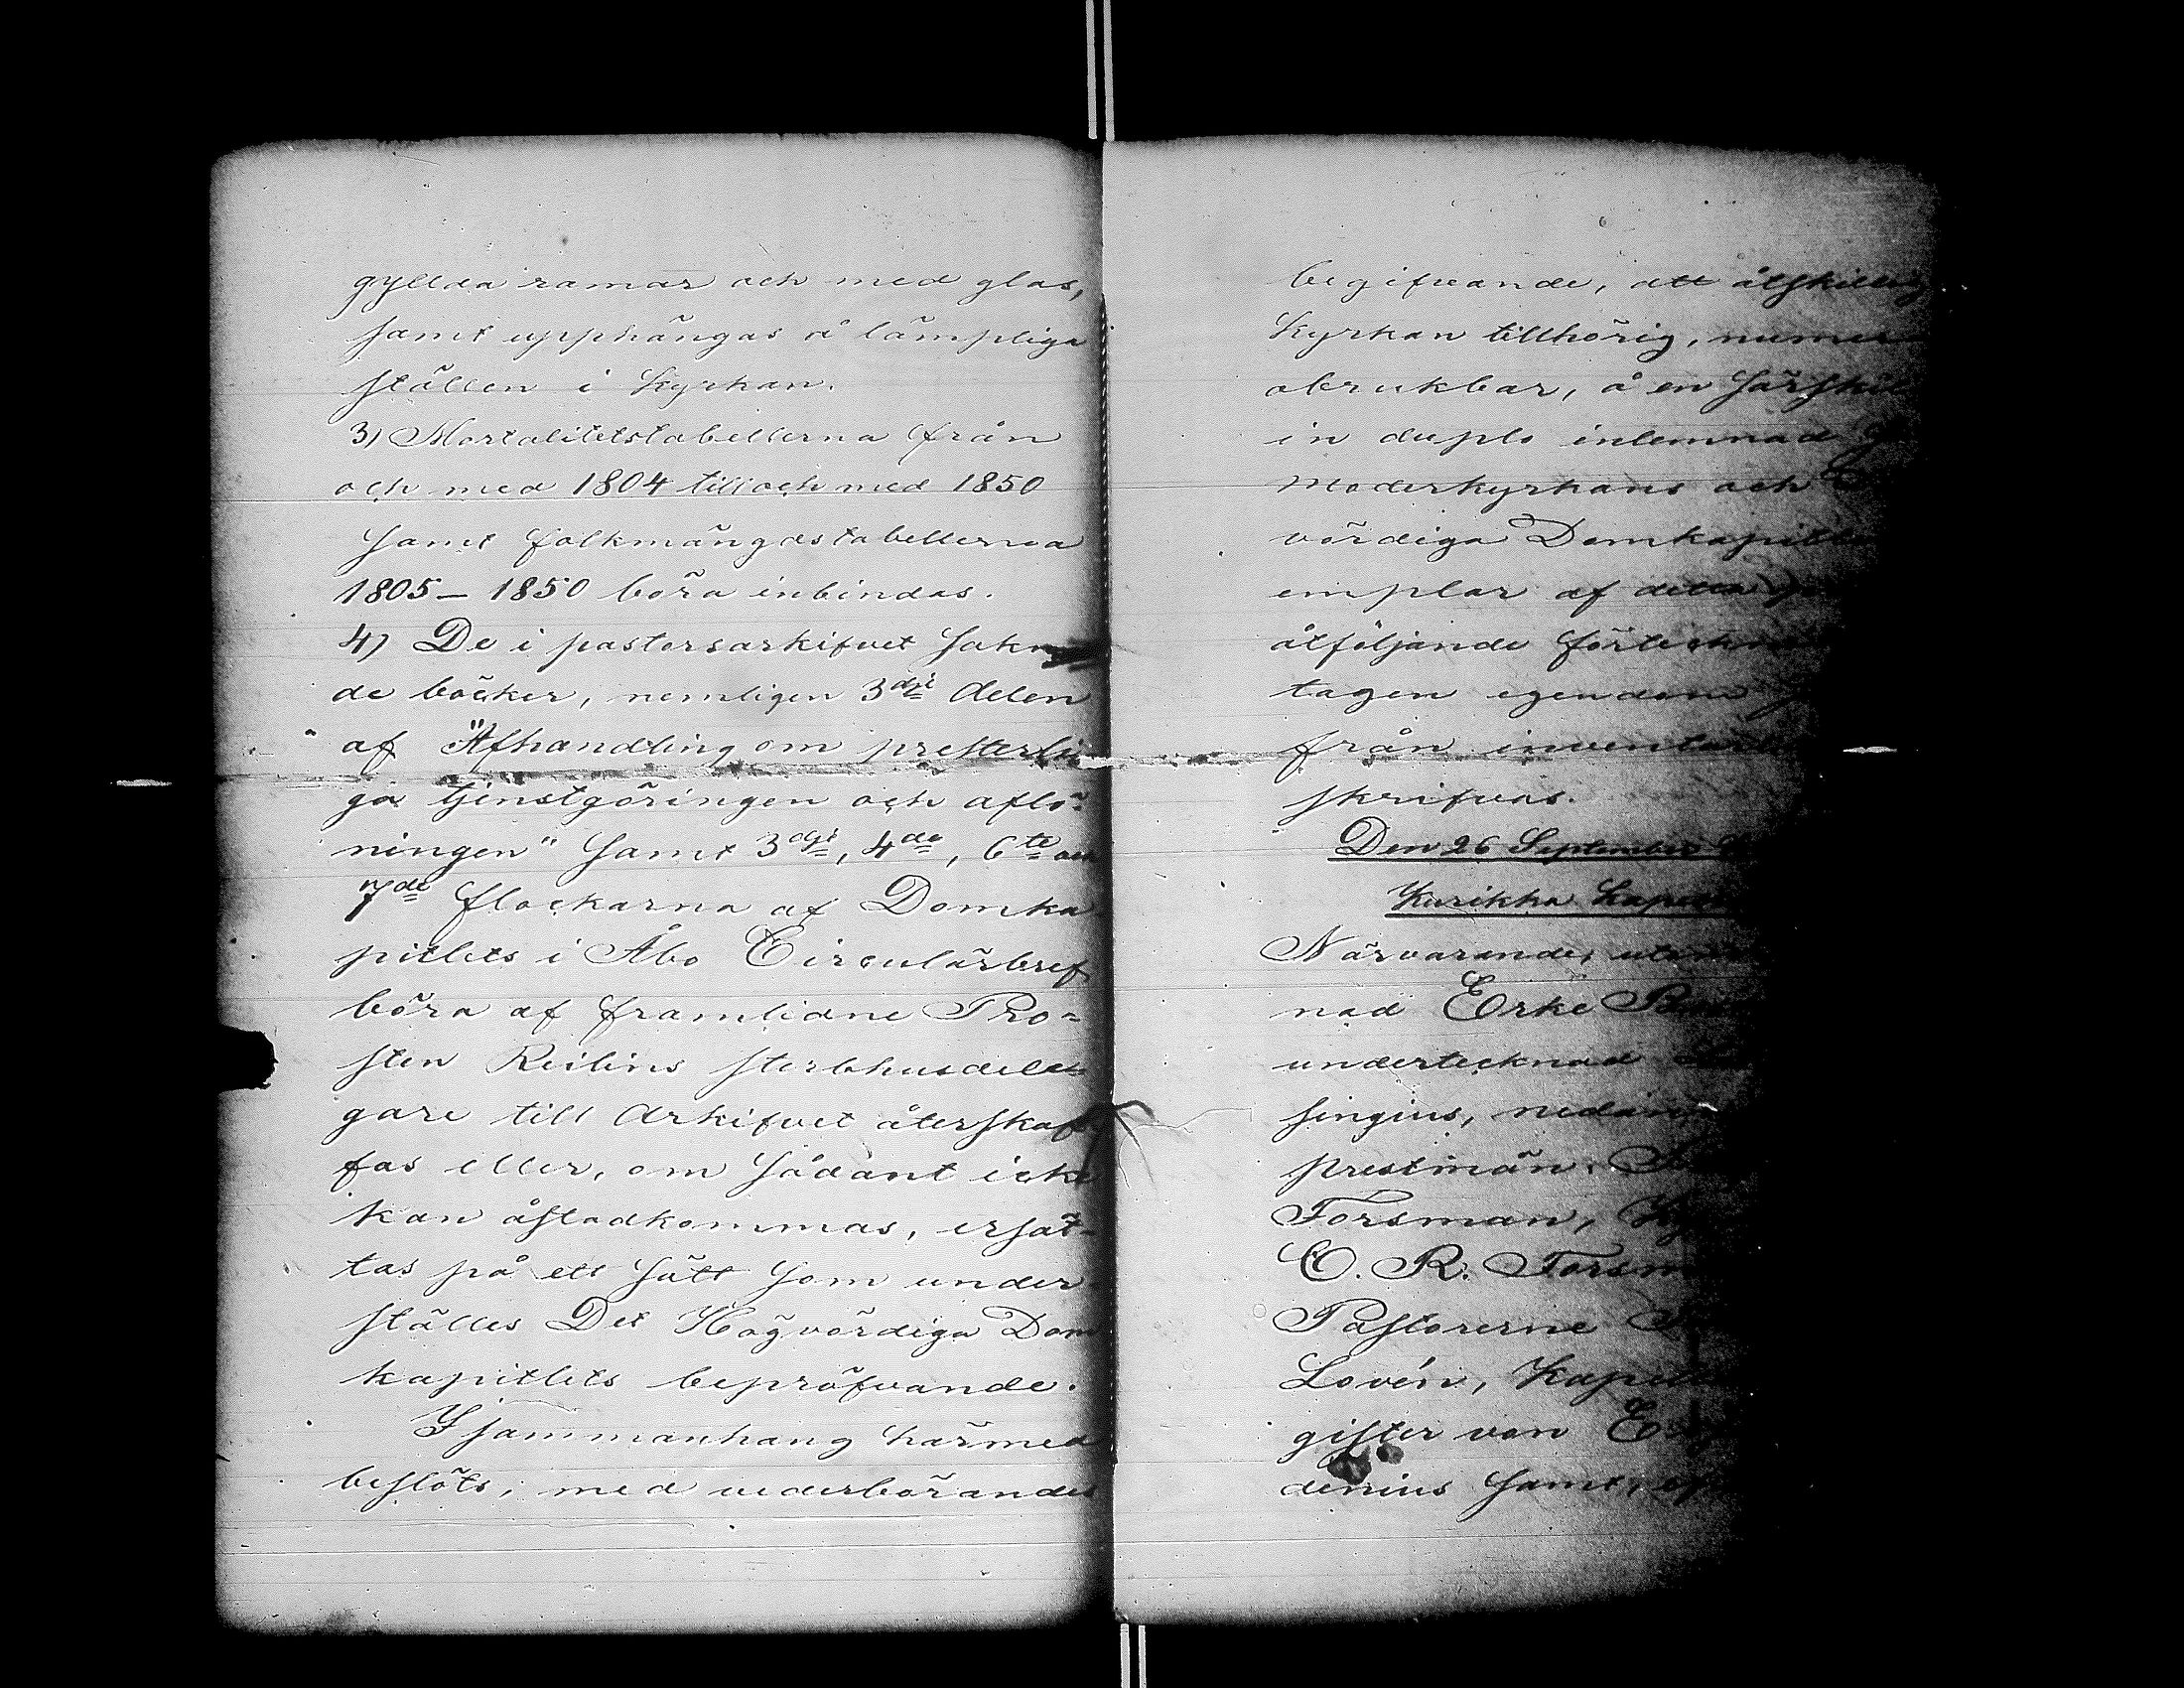 gyllda ramar och med glas,
samt upphängas å lämpliga
ställen i Kyrkan.
3) Mortalitetstabellerna från
och med 1804 till och med 1850
samt folkmängdstabellerna
1805 – 1850 böra inbindas.
4) De i pastorsarkifvet sakn
de böcker, nemligen 3dje delen
af "Afhandling om presterli
ga tjenstgöringen och aflö-
ningen" samt 3dje, 4de, 6te och
7de flockarna af Domka
pitlets i Åbo Circulärbref
böra af framlidne Pro-
sten Reilins sterbhusdelä
gare till Arkifvet återskaf
fas eller, om sådant icke
kan åstadkommas, ersät-
tas på ett sätt som under-
ställes Det Högvördiga Dom
kapitlets bepröfvande.
I sammanhang härmed
beslöts, med vederbörandes
begifvande, att åtskillig
Kyrkan tillhörig, numer
obrukbar, å en särskil
in duplo inlemnad
Moderkyrkans och
vördiga Domkapitle
emplar af detta
åtföljande förteckn
tagen egendom
från inventari
skrifvas.
Den 26 September
Kurikka Kapell
Närvarande, utom
nad Erke
undertecknad
singius, nedan
prestmän:
Forsman,
E. R. Forsm
Pastorerne
Lovén, Kapell
gister von Es
denius samt,